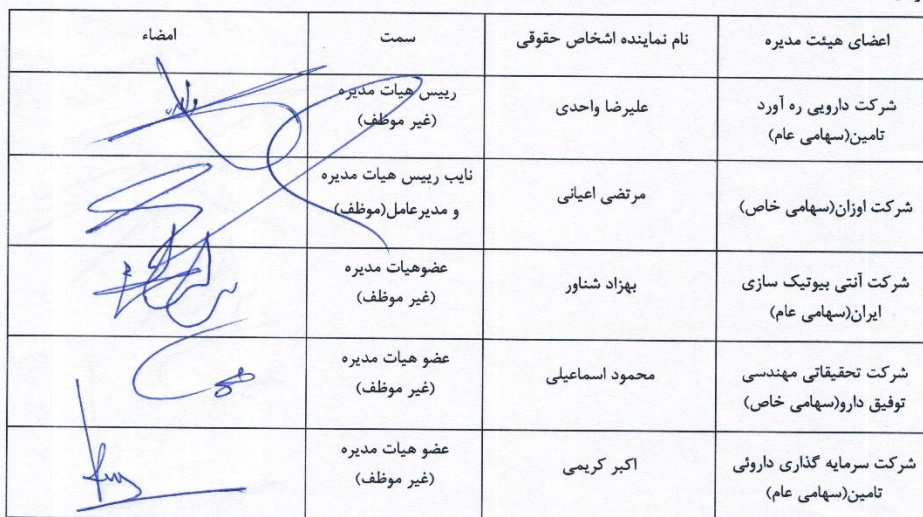 اعضای هیئت مدیره
نام نماینده اشخاص حقوقی
سمت
امضاء
شرکت دارویی ره آورد
تامین(سهامی عام)
علیرضا واحدی
رییس هیات مدیره
(غیر موظف)
شرکت اوزان(سهامی خاص)
مرتضی اعیانی
نایب رییس هیات مدیره
و مدیرعامل(موظف)
شرکت آنتی بیوتیک سازی
ایران(سهامی عام)
بهزاد شناور
عضوهیات مدیره
(غیر موظف)
شرکت تحقیقاتی مهندسی
توفیق دارو(سهامی خاص)
محمود اسماعیلی
عضو هیات مدیره
(غیر موظف)
شرکت سرمایه گذاری داروئی
تامین(سهامی عام)
اکبر کریمی
عضو هیات مدیره
(غیر موظف)